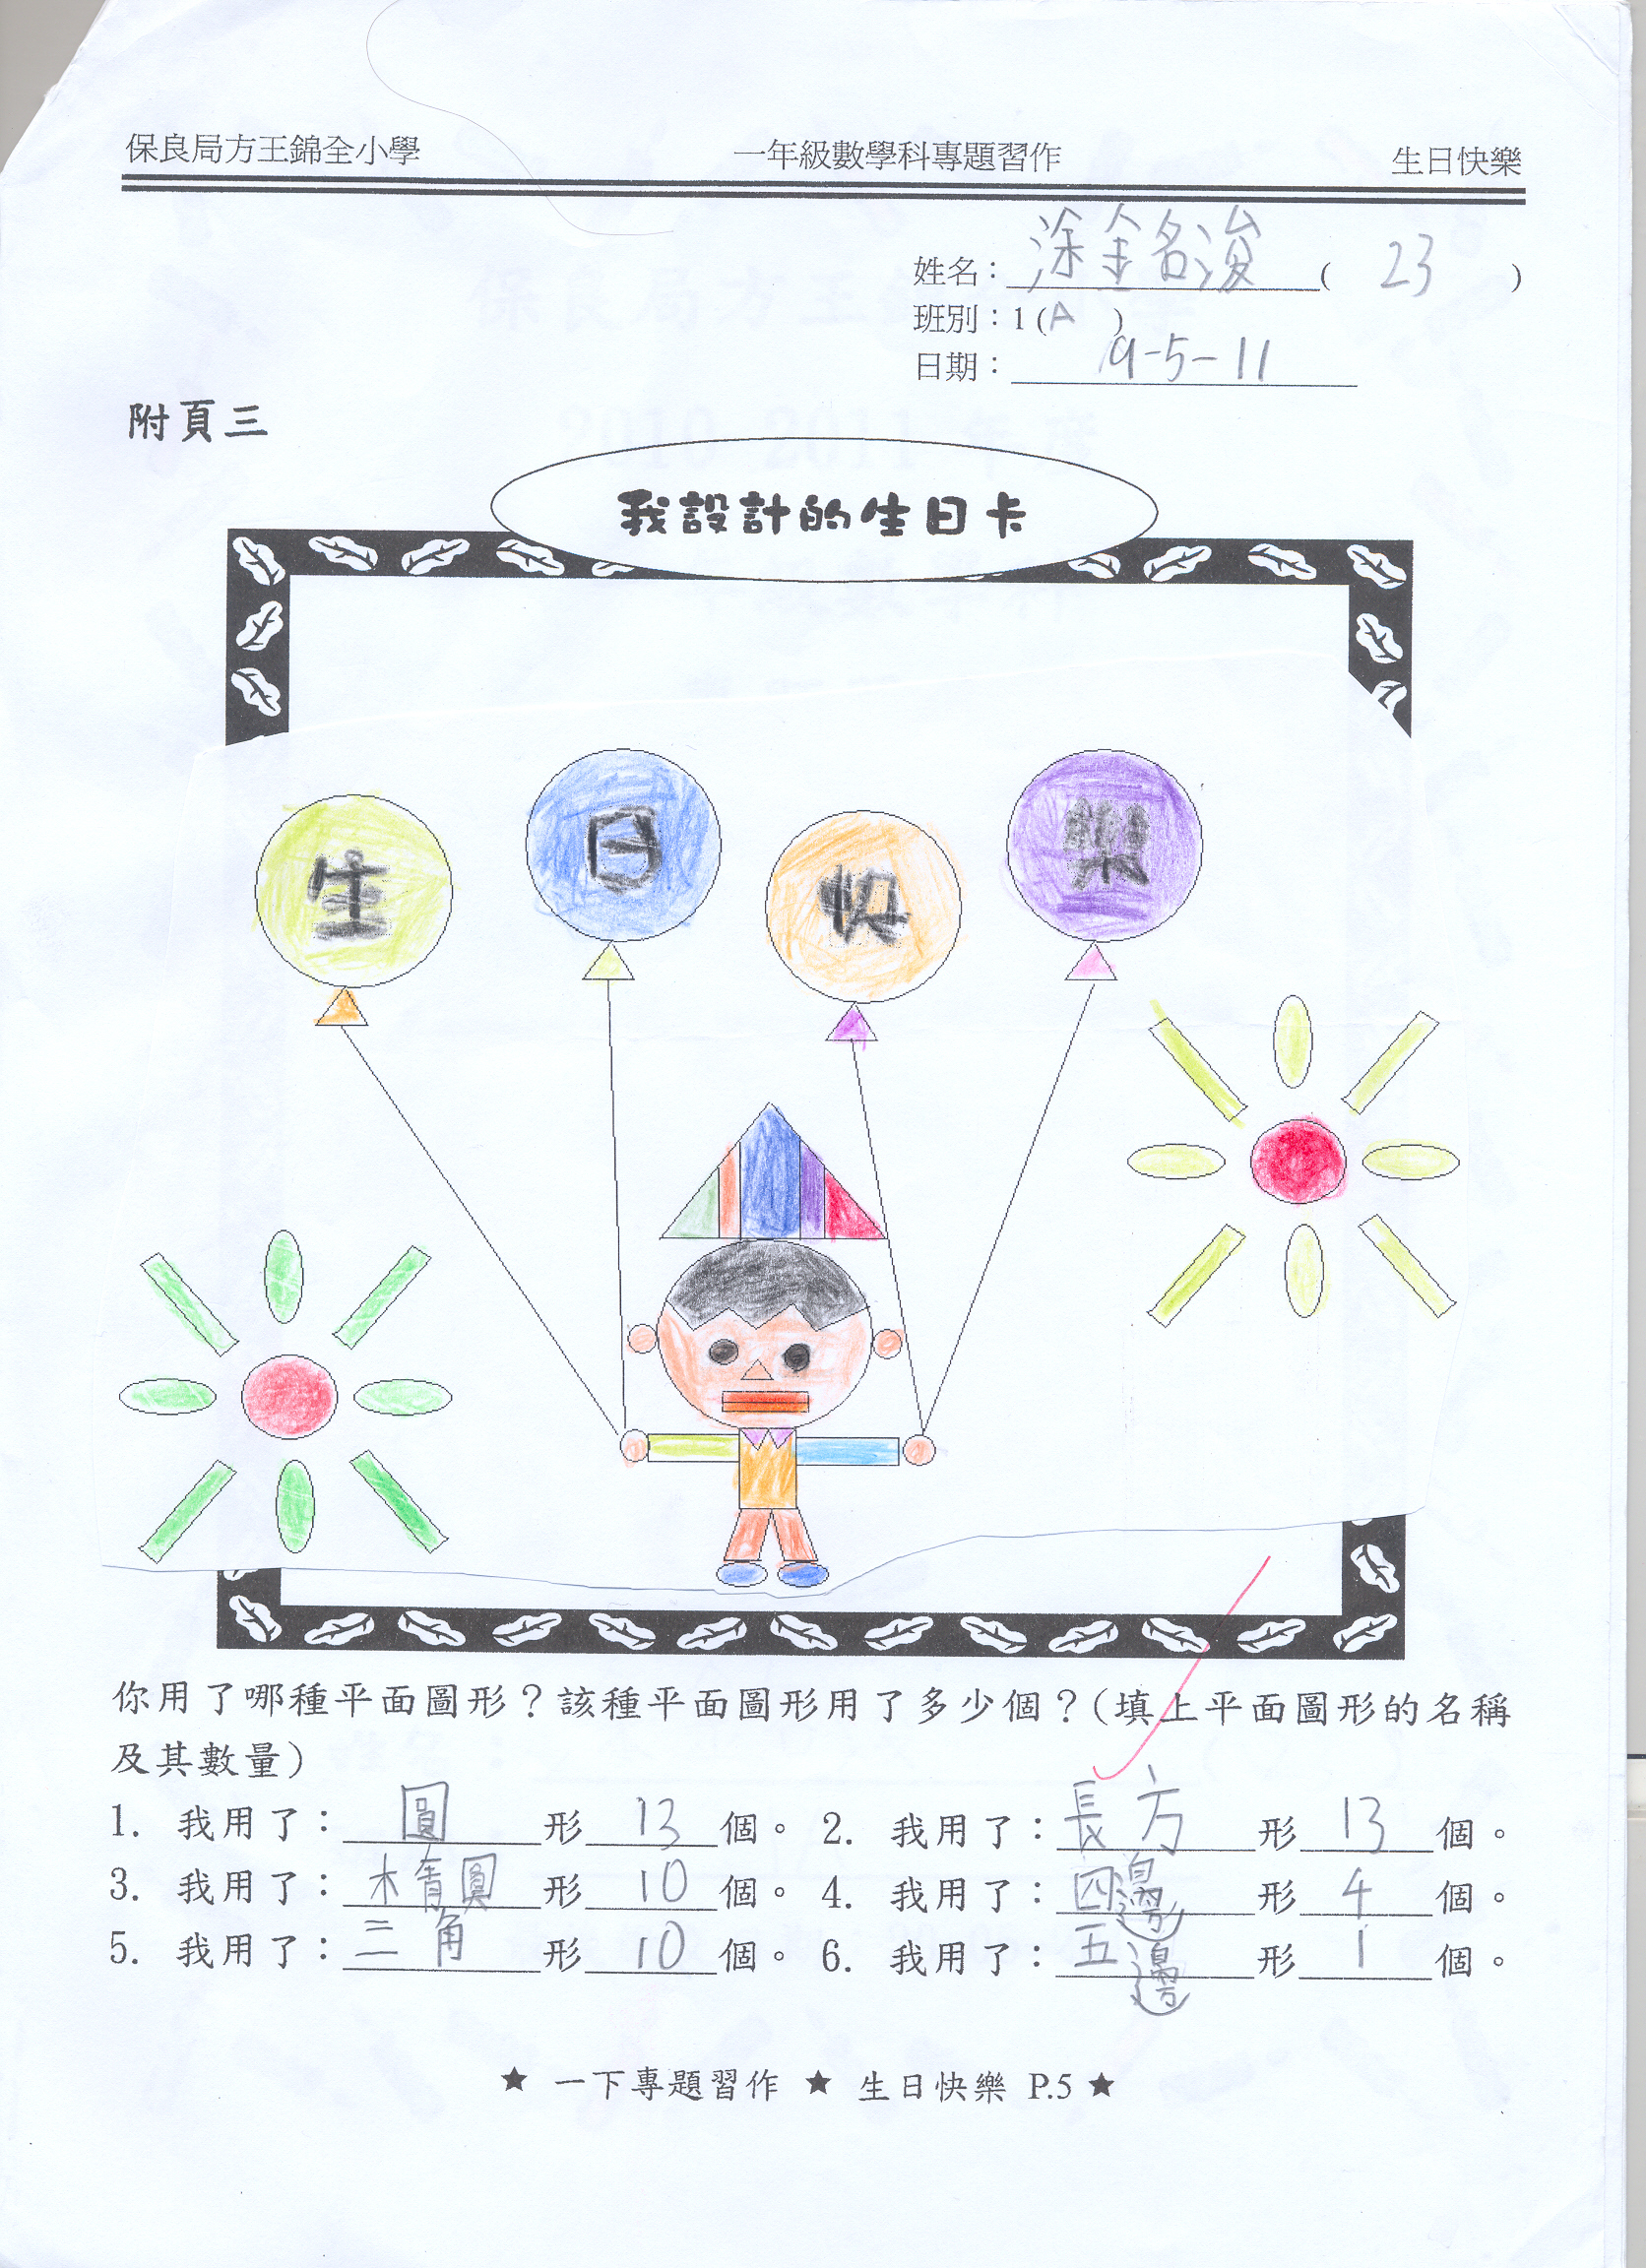 保良局方王錦全小學 一年級數學科專題習作 生日快樂
姓名：涂金名浚( 23 )
班別：1 (A )
日期：19-5-11
附頁三
我設計的生日卡
生 日 快 樂
你用了哪種平面圖形？該種平面圖形用了多少個？(填上平面圖形的名稱
及其數量)
1. 我用了：圓形13個。 2. 我用了：長方形13個。
3. 我用了：橢圓形10個。 4. 我用了：四邊形4個。
5. 我用了：三角形10個。 6. 我用了：五邊形1個。
★ 一下專題習作 ★ 生日快樂 P.5 ★